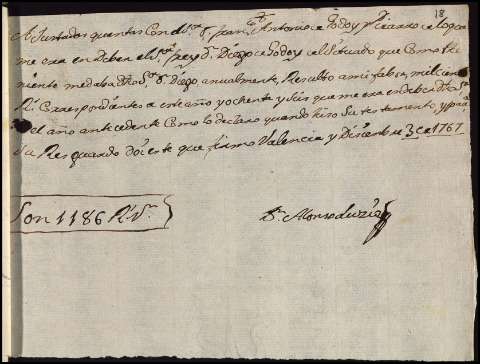 18
Ajustadas quentas Con el Sr. Dn. fran.co Antonio de Godoy y Pizarro de lo que
me era en Deber el Sr. frey Dn. Diego de Godoy del Situado que Como the
niente me daba dho Sr. Dn. Diego anualmente, Resulto a mi fabor, mil cien
Rs. Correspondientes a este año y ochenta y seis que me era en deber dho Sr.
del año antecedente Como lo declaro quando hizo su testamento, y para
su Resguardo doi este que firmo Valencia y Diziembre 3 de 1767
Son 1186 Rs. Vn.
Dn. Alonso